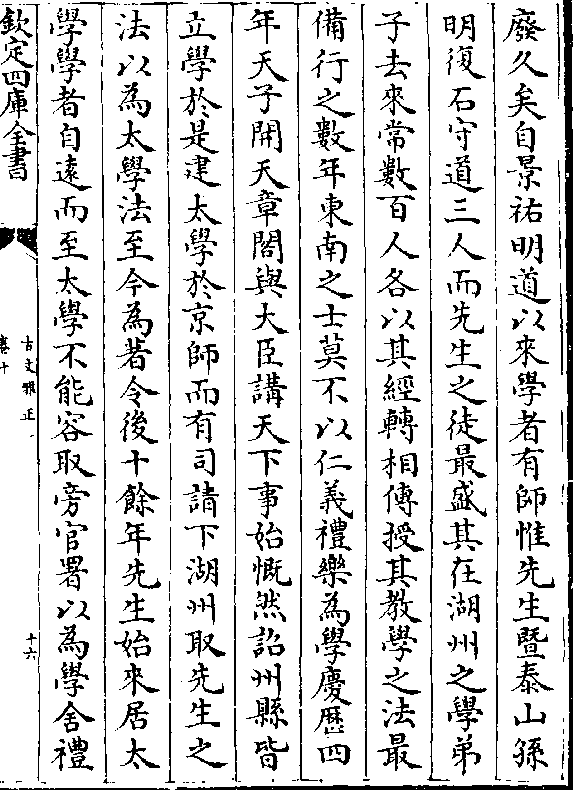 廢久矣自景祐明道以來學者有師惟先生暨泰山孫
明復石守道三人而先生之徒最盛其在湖州之學弟
子去來常數百人各以其經轉相傳授其教學之法最
備行之數年東南之士莫不以仁義禮樂為學慶厯四
年天子開天章閣與大臣講天下事始慨然詔州縣皆
立學於是建太學於京師而有司請下湖州取先生之
法以為太學法至今為著令後十餘年先生始來居太
學學者自遠而至太學不能容取旁官署以為學舍禮
欽定四庫全書
古文雅正
卷十
十六